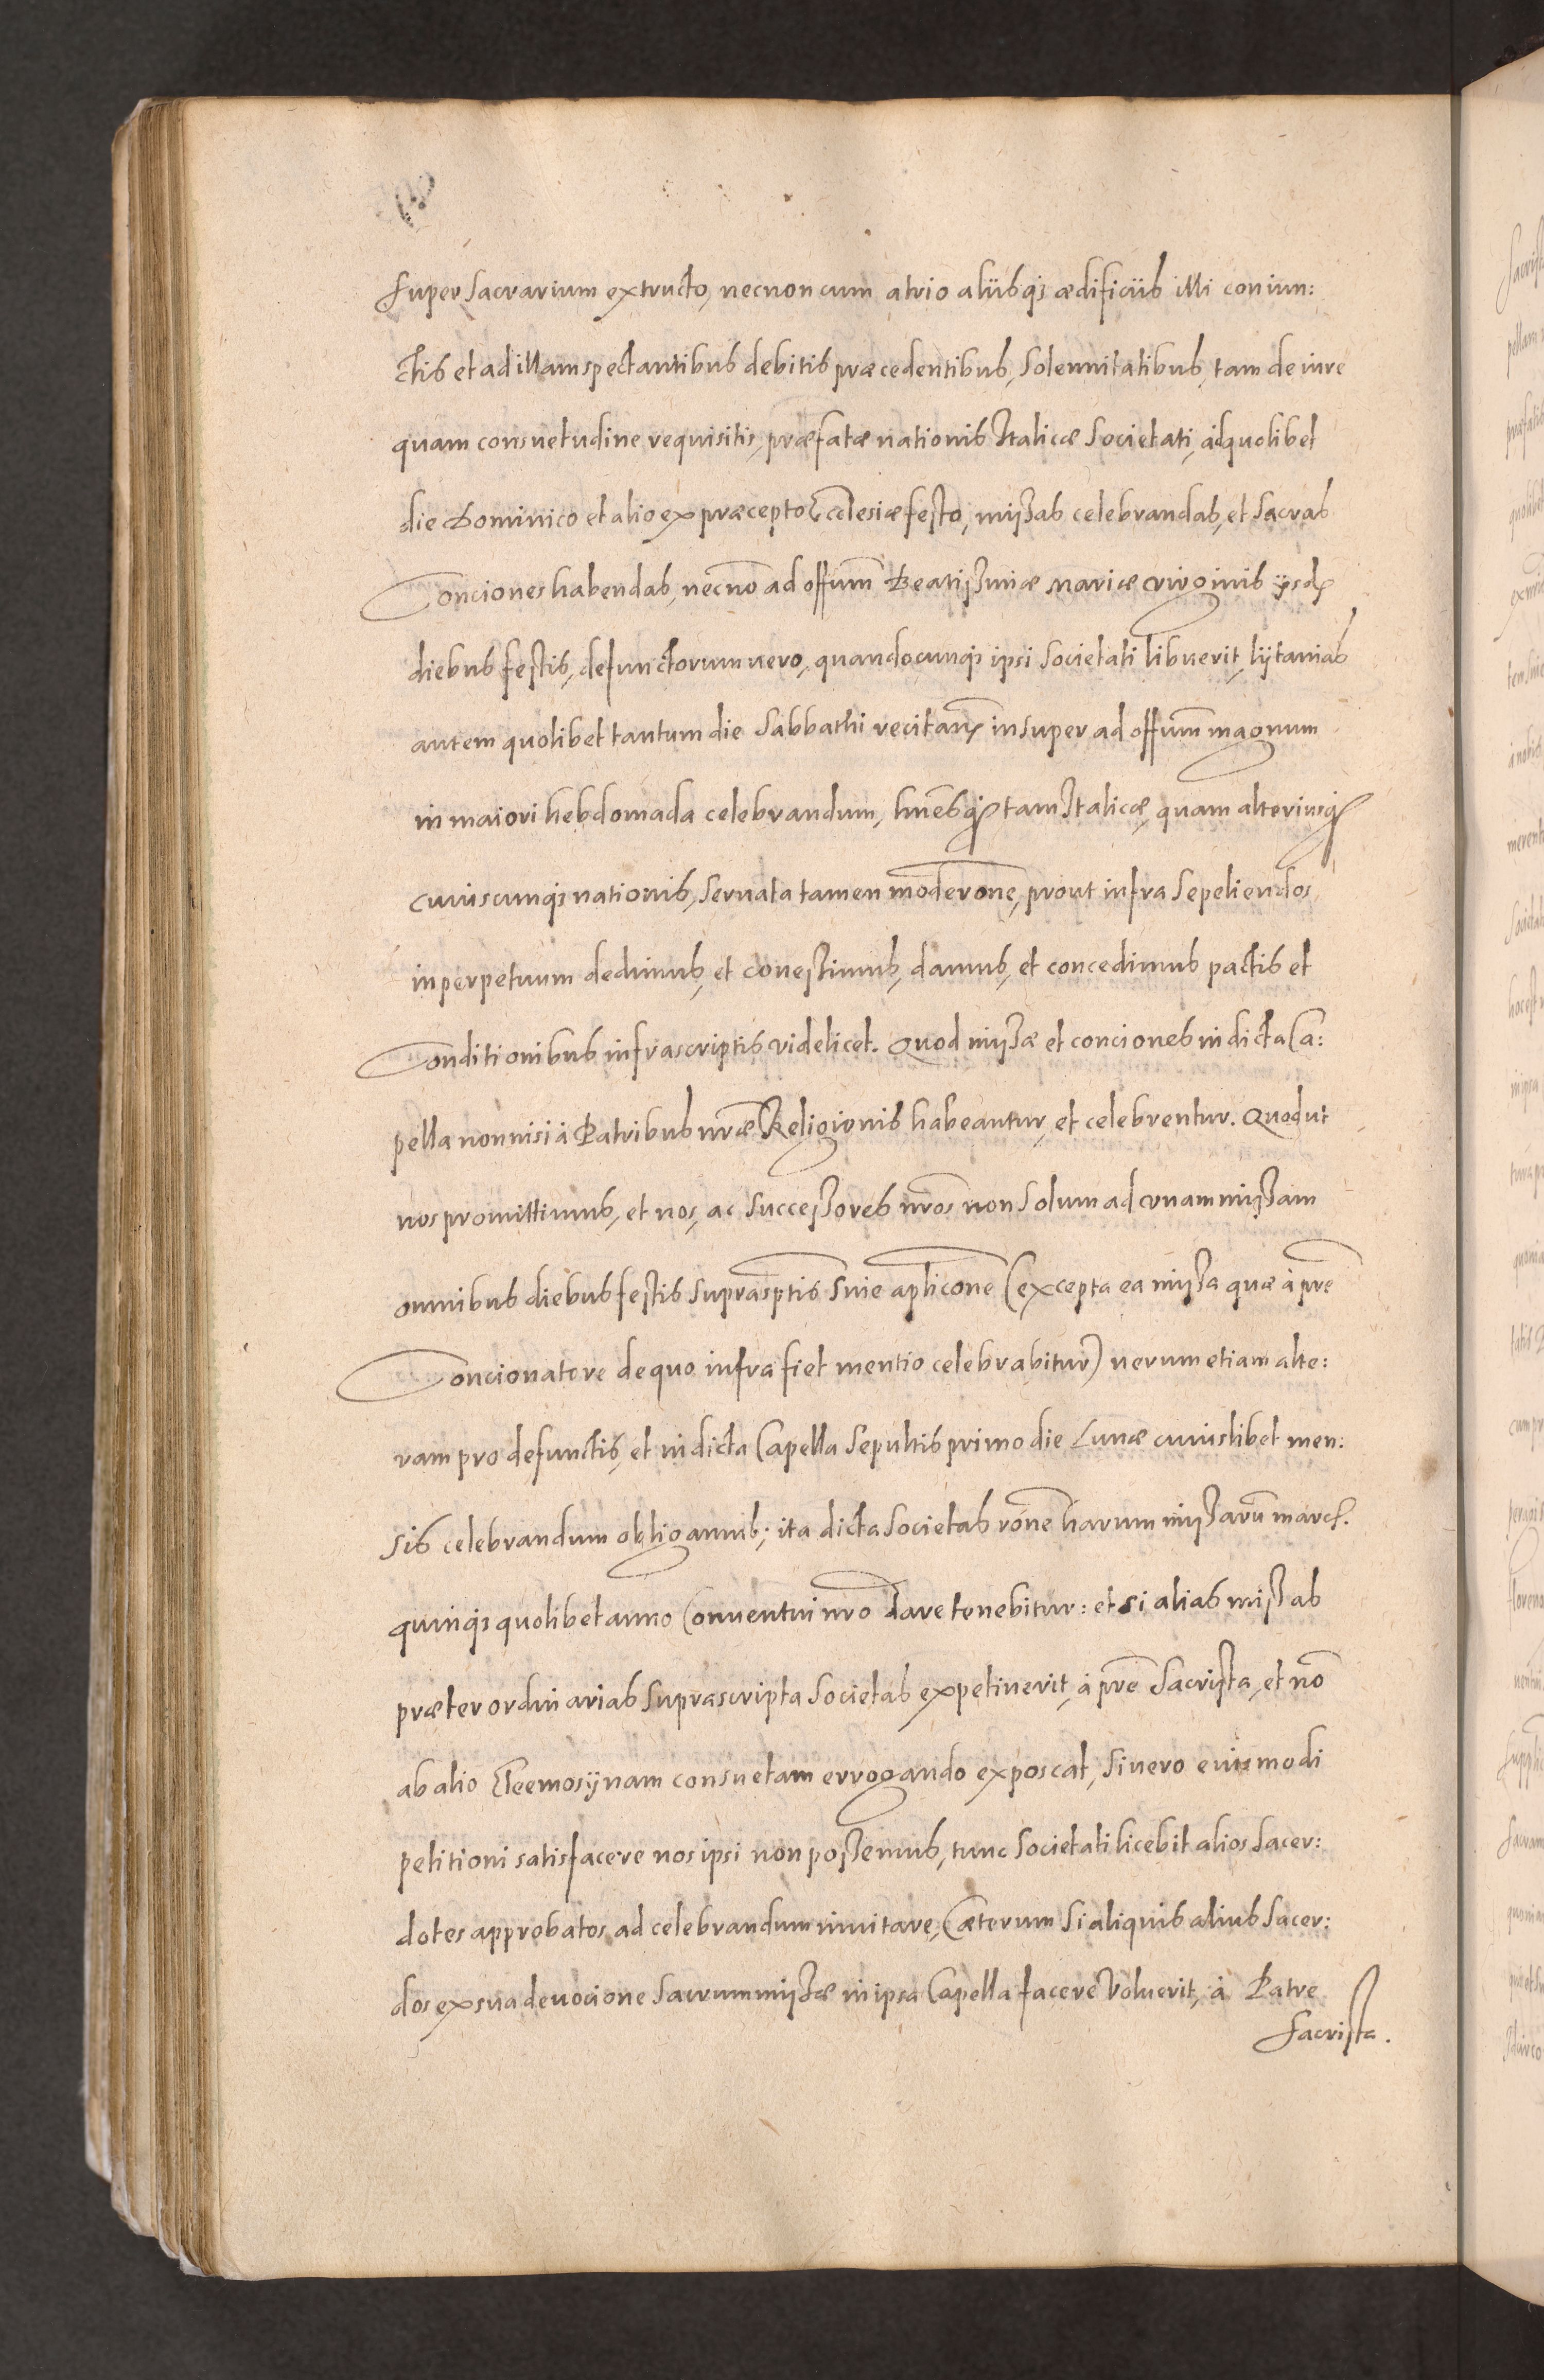 super Sacrarium extructo, necnon cum atrio aliisq₃ ædificiis illi coniun:
ctis et ad illam spectantibus debitis præcedentibus, Solennitatibus, tam de iure
quam consuetudine requisitis, præfatæ nationis Italicæ Societati, ad quolibet
die Dominico et alio ex præcepto Ecclesiæ festo, missas celebrandas, et Sacras
Conciones habendas, necnō ad offium̄ Beatissimæ Mariæ virginis ijsdē
diebus festis, defunctorum uero, quandocunq₃ ipsi Societati libuerit, lijtanias
autem quolibet tantum die Sabbathi recitan̄ insuper ad offium̄ magnum
in maiori hebdomada celebrandum, hnēsq₃ tam Italicæ, quam alteriusq₃
cuiuscunq₃ nationis, seruata tamen moderōne, prout infra Sepeliendos
in perpetuum dedimus, et concssimus, damus, et concedimus pactis et
Conditionibus infrascriptis videlicet. Quod missæ et conciones in dicta Ca:
pella non nisi à Patribus nr̄æ Religionis habeantur, et celebrentur. Quod ut
nos promittimus, et nos, ac Successores nr̄os non Solum ad vnam missam
omnibus diebus festis suprasp̄tis sine aplicōne (excepta ea missa quæ à pr̄e
Concionatore de quo infra fiet mentio celebrabitur) uerum etiam alte:
ram pro defunctis, et in dicta Capella Sepultis primo die Lunæ cuiuslibet men:
sis celebrandum obligamus; ita dicta Societas rōne harum missarū marc.
quinq₃ quolibet anno Conuentui nr̄o dare tenebitur: et si alias missas
præter ordinarias suprascripta Societas expetiuerit, à pr̄e Sacrista, et nō
ab alio Eleemosijnam consuetam errogando exposcat, si uero eiusmodi
petitioni satisfacere nos ipsi non possemus, tunc Societati licebit alios Sacer:
dotes approbatos ad celebrandum inuitare, Cæterum Si aliquis alius Sacer:
dos ex sua deuocione Sacrum missæ in ipsa Capella facere voluerit, à Patre
Sacrista.